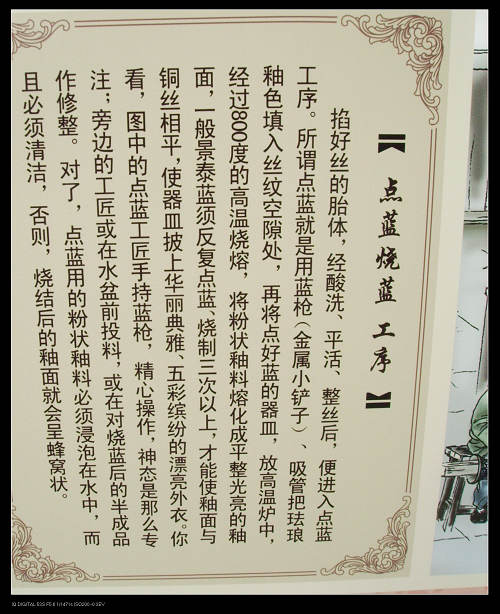 【点蓝烧蓝工序】
掐好丝的胎体，经酸洗、平活、整丝后，便进入点蓝
工序。所谓点蓝就是用蓝枪（金属小铲子）、吸管把珐琅
釉色填入丝纹空隙处，再将点好蓝的器皿，放高温炉中，
经过800度的高温烧熔，将粉状釉料熔化成平整光亮的釉
面，一般景泰蓝须反复点蓝、烧制三次以上，才能使釉面与
铜丝相平，使器皿披上华丽典雅、五彩缤纷的漂亮外衣。你
看，图中的点蓝工匠手持蓝枪，精心操作，神态是那么专
注；旁边的工匠或在水盆前投料，或在对烧蓝后的半成品
作修整。对了，点蓝用的粉状釉料必须浸泡在水中，而
且必须清洁，否则，烧结后的釉面就会呈蜂窝状。